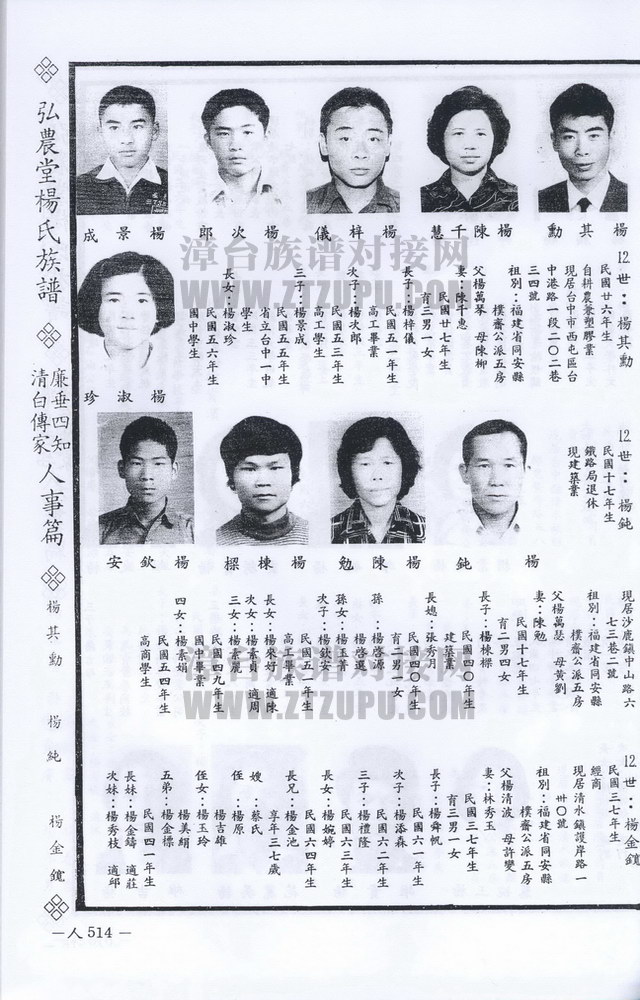 弘農堂楊氏族譜
廉垂四知
清白傳家
人事篇
楊其勳
楊純
楊金鐤
楊其勳
楊陳千慧
楊梓儀
楊次郎
楊景成
楊淑珍
12世：楊其勳
民國廿六年生
自耕農兼塑膠業
現居台中市西屯區台
中港路一段二〇二巷
三四號
祖別：福建省同安縣
樸齋公派五房
父楊萬琴　母陳柳
妻：陳千惠
民國廿七年生
育三男一女
長子：楊梓儀
民國五一年生
高工畢業
次子：楊次郎
民國五三年生
高工學生
三子：楊景成
民國五五年生
省立台中一中
學生
長女：楊淑珍
民國五六年生
國中學生
楊鈍
楊陳勉
楊棟樑
楊欽安
12世：楊鈍
民國十七年生
鐵路局退休
現建築業
現居沙鹿鎮中山路六
七三巷二號
祖別：福建省同安縣
樸齋公派五房
父楊萬瑟　母黃劉
妻：陳勉
民國十七年生
育二男四女
長子：楊棟樑
民國四〇年生
建築業
長媳：張秀月
民國四〇年生
育二男一女
孫：楊啓源
楊啓選
孫女：楊玉菁
次子：楊欽安
民國五一年生
高工畢業
長女：楊來好　適陳
次女：楊素真　適周
三女：楊素麗
民國四九年生
國中畢業
四女：楊素娟
民國五四年生
高商學生
12世：楊金鐤
民國三七年生
經商
現居清水鎮護岸路一
卅〇號
祖別：福建省同安縣
樸齋公派五房
父楊清波　母許變
妻：林秀玉
民國三七年生
育三男一女
長子：楊舜帆
民國六一年生
次子：楊添森
民國六二年生
三子：楊禮隆
民國六三年生
長女：楊婉婷
民國六四年生
長兄：楊金池
享年三七歲
嫂：蔡氏
侄：楊原
楊吉雄
侄女：楊玉玲
楊美絹
五弟：楊金標
民國四一年生
長妹：楊金鑄　適莊
次妹：楊秀枝　適邱
—人 514 —
漳台族谱对接网
WWW.ZTZUPU.COM
漳台族谱对接网
WWW.ZTZUPU.COM